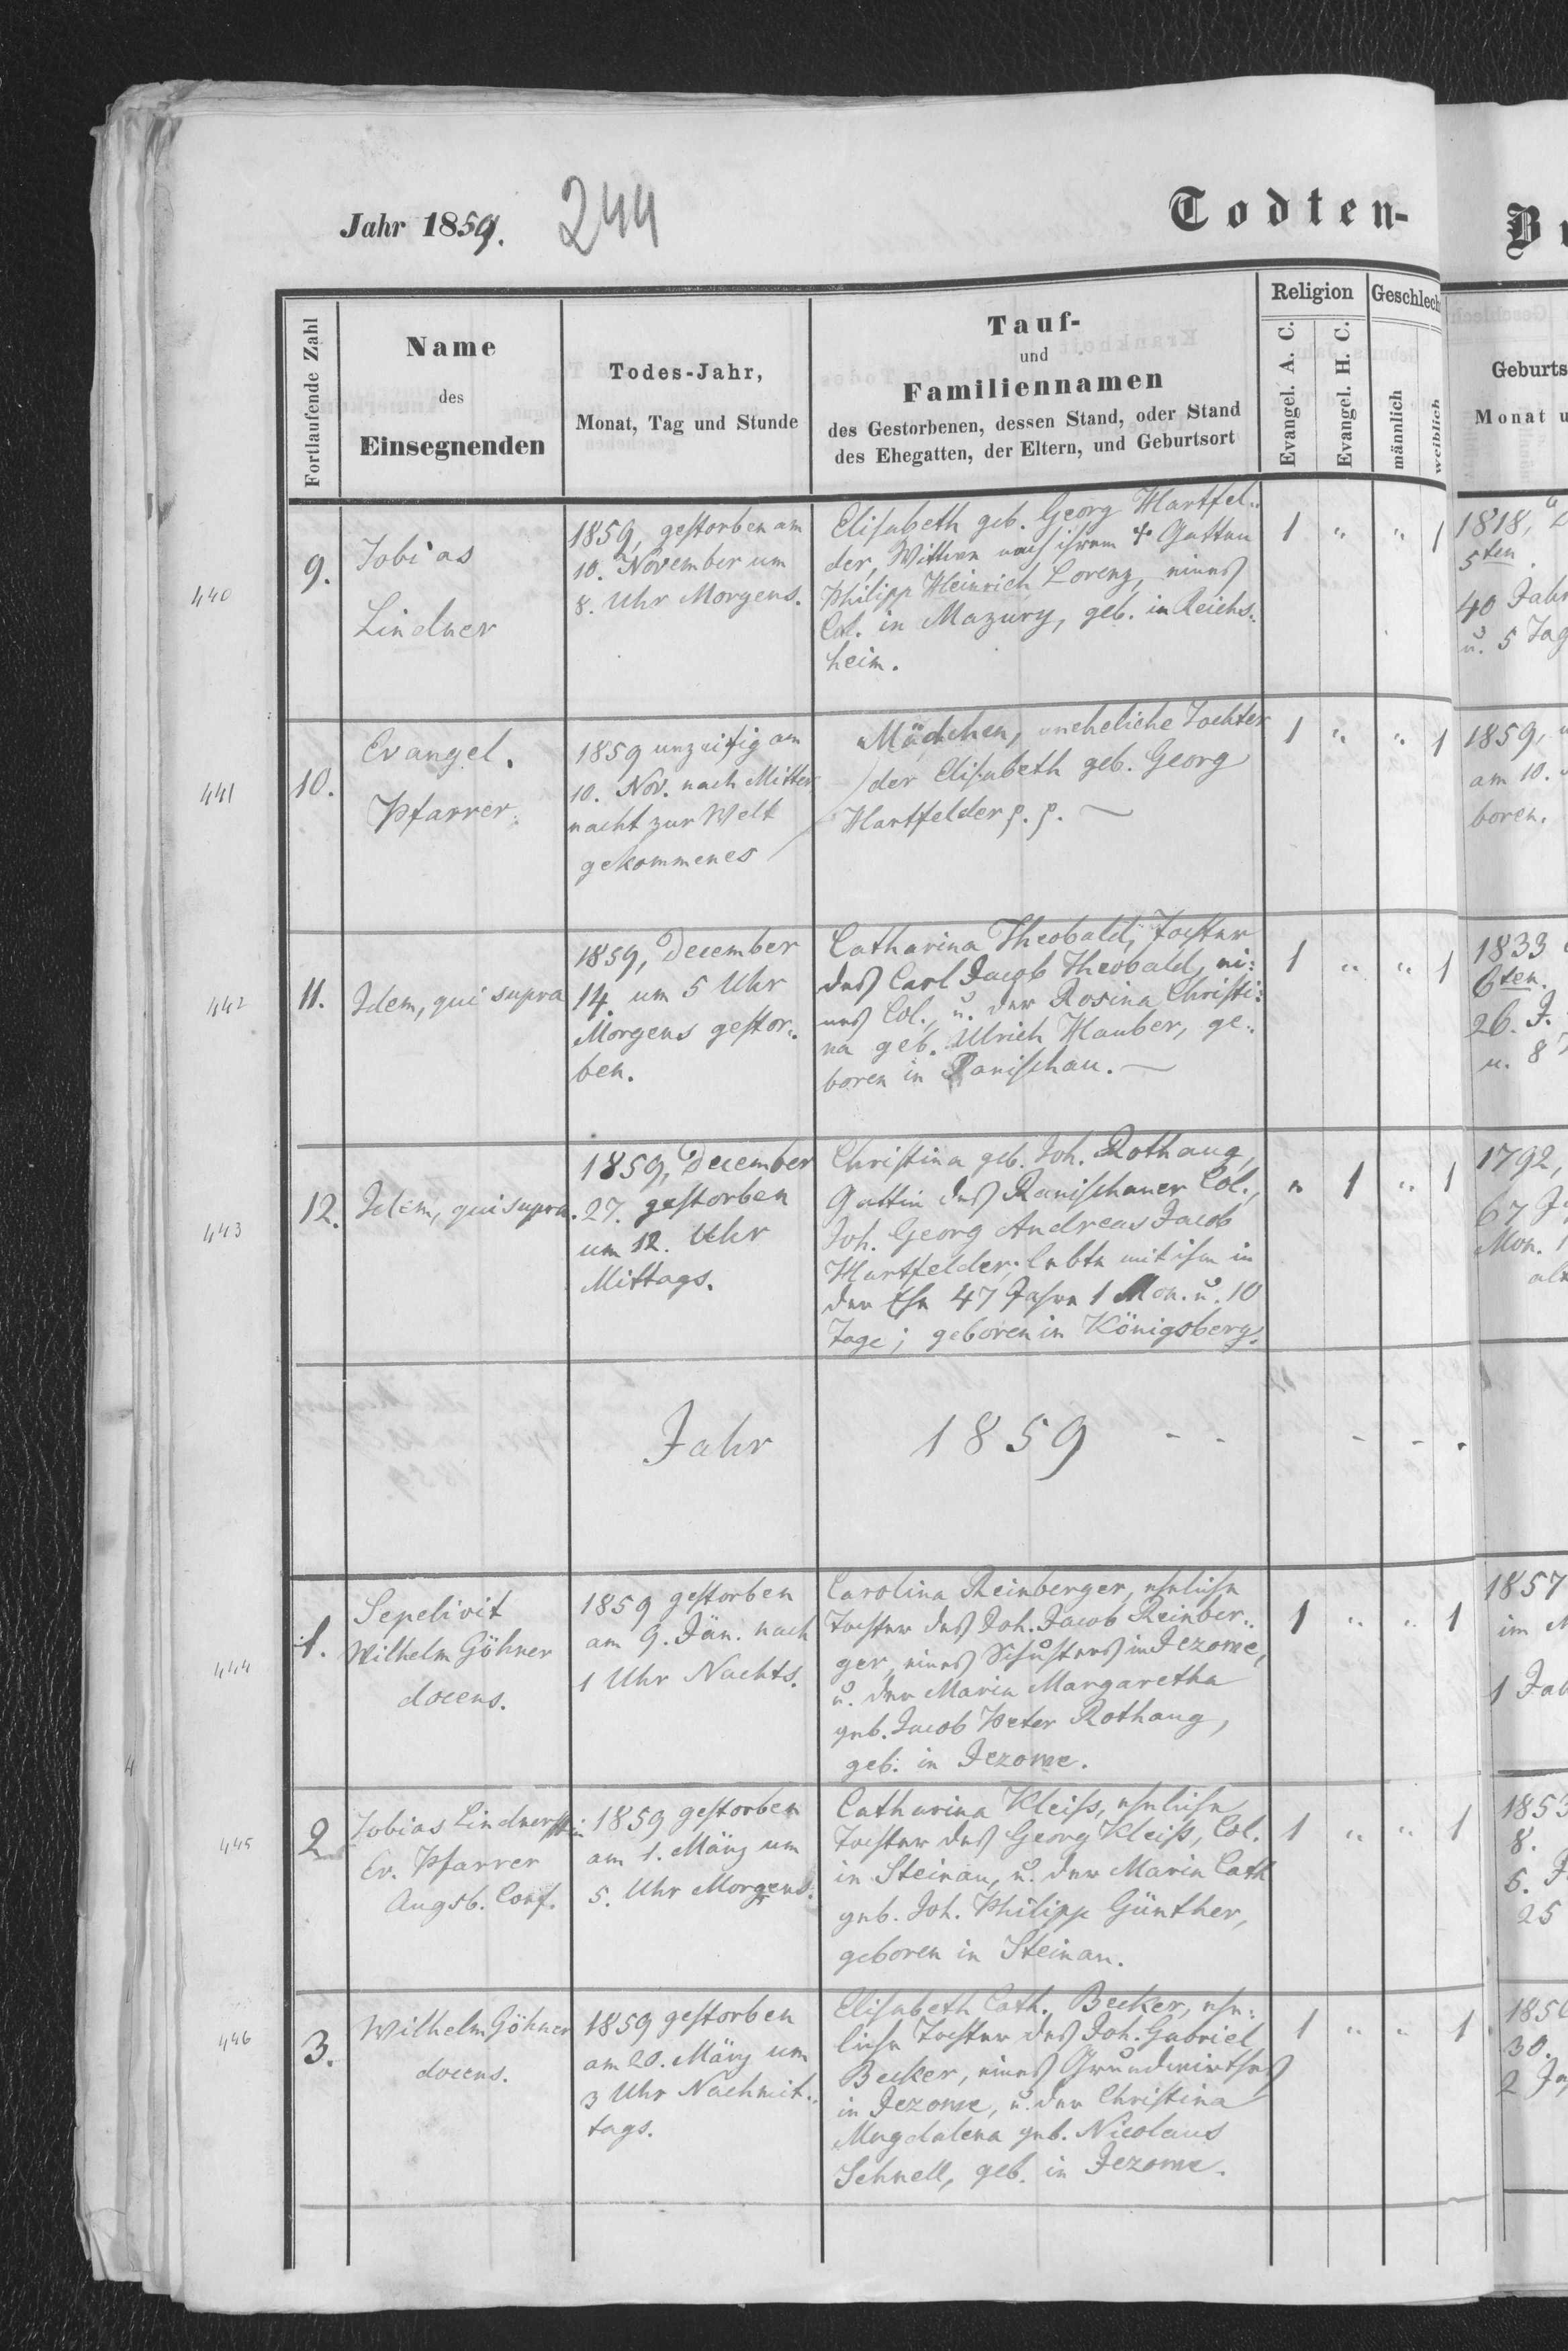 Jahr 1859. 244 Todten-
Fortlaufende Zahl
Name
des
Einsegnenden
Todes-Jahr,
Monat, Tag und Stunde
Tauf-
und
Familiennamen
des Gestorbenen, dessen Stand, oder Stand
des Ehegatten, der Eltern, und Geburtsort
Religion
Evangel. A. C.
Evangel. H. C.
Geschlech
männlich
weiblich
Geburts
Monat u
440
9.
Tobias
Lindner
1859, gestorben am
10. November um
8. Uhr Morgens.
Elisabeth geb. Georg Hartfel„
der, Wittwe nach ihrem + Gatten
Philipp Heinrich Lorenz, eines
Col. in Mazury, geb. in Reichs„
heim.
1 „ „ 1
1818,
5ten
40 Jahr
u. 5 Tag
441
10.
Evangel.
Pfarrer.
1859 unzeitig am
10. Nov. nach Mitter
nacht zur Welt
gekommenes
Mädchen, uneheliche Tochter
der Elisabeth geb. Georg
Hartfelder p. p. —
1 „ „ 1
1859,
am 10.
boren.
442
11.
Idem, qui supra
1859, December
14. um 5 Uhr
Morgens gestor„
ben.
Catharina Theobald, Tochter
des Carl Jacob Theobald, ei:
nes Col., u. der Rosina Christi:
na geb. Ulrich Hauber, ge„
boren in Ranischau. —
1 „ „ 1
1833
6ten.
26. J.
u. 8
443
12.
Idem, qui supra.
1859, December
27. gestorben
um 12. Uhr
Mittags.
Christina geb. Joh. Rothaug,
Gattin des Ranischauer Col.,
Joh. Georg Andreas Jacob
Hartfelder; lebte mit ihm in
der Ehe 47 Jahre 1 Mon. u. 10
Tage; geboren in Königsberg.
„ 1 „ 1
1792,
67 J
Mon.
alt
Jahr 1859 - - - - .
444
1.
Sepelivit
Wilhelm Göhner
docens.
1859 gestorben
am 9. Jän. nach
1 Uhr Nachts.
Carolina Reinberger, eheliche
Tochter des Joh. Jacob Reinber„
ger, eines Schusters in Jezowe,
u. der Maria Margaretha
geb. Jacob Peter Rothaug,
geb. in Jezowe.
1 „ „ 1
1857
im M
1 Jah
445
2
Tobias Lindner
Ev. Pfarrer
Augsb. Conf.
1859 gestorben
am 1. März um
5. Uhr Morgens.
Catharina Kleiss, eheliche
Tochter des Georg Kleiss, Col.
in Steinau, u. der Maria Cath
geb. Joh. Philipp Günther,
geboren in Steinau.
1 „ „ 1
1853
8.
5. J
25
446
3.
Wilhelm Göhner
docens.
1859 gestorben
am 20. März um
3 Uhr Nachmit„
tags.
Elisabeth Cath. Becker, ehe:
liche Tochter des Joh. Gabriel
Becker, eines Grundwirthes
in Jezowe, u. der Christina
Magdalena geb. Nicolaus
Schnell, geb. in Jezowe.
1 „ „ 1
1856
30.
2 Ja